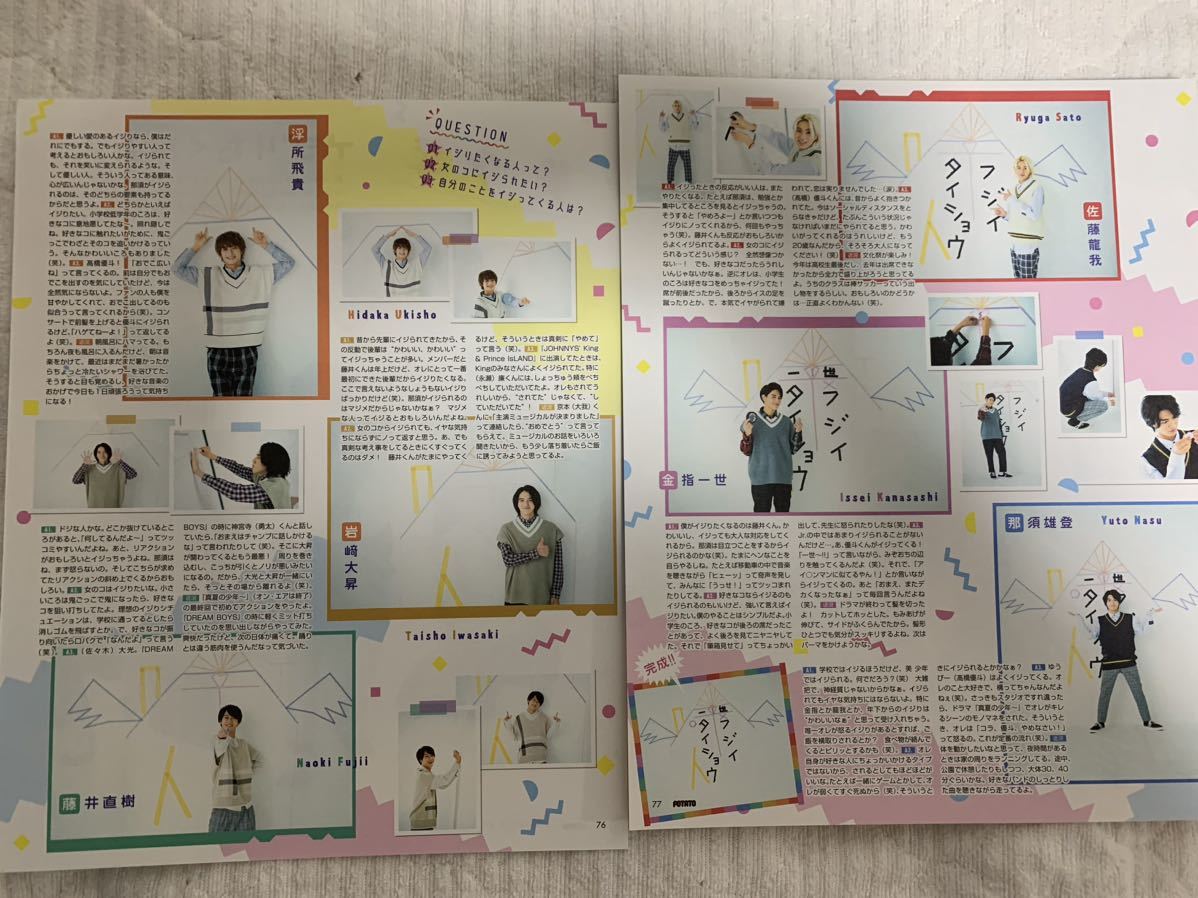 QUESTION
Q1 イジりたくなる人って?
Q2 女のコにイジられたい?
Q3 自分のことをイジってくる人は?
浮所飛貴
A1. 優しい愛のあるイジりなら、僕はだ
れにでもする。でもイジりやすい人って
考えるとおもしろい人かな。イジられて
も、それを笑いに変えられるような、そ
して優しい人。そういう人ってある意味、
心が広いんじゃないかな。那須がイジら
れるのは、そのどちらの要素も持ってる
からだと思うよ。A2. どちらかといえば
イジりたい。小学校低学年のころは、好
きなコに意地悪してたなぁ。照れ隠しで
ね。好きなコに触れたいがために、鬼ご
っこでわざとそのコを追いかけるってい
う。そんなかわいいころもありました
(笑)。A3. 高橋優斗!「おでこ広い
ね」って言ってくるの。前は自分でもお
でこを出すのを気にしていたけど、今は
全然気にならないよ。ファンの人も僕を
甘やかしてくれて、おでこ出してるのも
似合うって言ってくれるから(笑)。コン
サートで前髪を上げると優斗にイジられ
るけど、「ハゲてねーよ!」って返してる
よ(笑)。近況 朝風呂にハマってる。も
ちろん夜も風呂に入るんだけど、朝は音
楽をかけて。最近はまだまだ暑かったか
らちょっと冷たいシャワーを浴びてた。
そうすると目も覚めるし、好きな音楽の
おかげで今日も1日頑張ろうって気持ち
になる!
Hidaka Ukisho
A1. 昔から先輩にイジられてきたから、そ
の反動で後輩は"かわいい、かわいい"っ
てイジっちゃうことが多い。メンバーだと
藤井くんは年上だけど、オレにとって一番
最初にできた後輩だからイジりたくなる。
ここで言えないようなしょうもないイジり
ばっかりだけど(笑)。那須がイジられるの
はマジメだからじゃないかなぁ? マジメ
な人ってイジるとおもしろいんだよね。
A2. 女のコからイジられても、イヤな気持
ちにならずにノって返すと思う。あ、でも
真剣な考え事をしてるときにくすぐってく
るのはダメ! 藤井くんがたまにやってく
るけど、そういうときは真剣に「やめて」
って言う(笑)。A3. 『JOHNNYS' King
& Prince IsLAND』に出演してたときは、
Kingのみなさんによくイジられてた。特に
(永瀬)廉くんには、しょっちゅう頬をペち
ペちしていただいてたよ。オレもされてう
れしいから、"されてた"じゃなくて、"し
ていただいてた"! 近況 京本(大我)く
んに「主演ミュージカルが決まりました」
って連絡したら、"おめでとう"って言って
もらえて。ミュージカルのお話をいろいろ
聞きたいから、もう少し落ち着いたらご飯
に誘ってみようと思ってるよ。
岩﨑大昇
Taisho Iwasaki
A1. ドジな人かな。どこか抜けているとこ
ろがあると、「何してるんだよ〜」ってツッ
コミやすいんだよね。あと、リアクション
がおもしろいとイジっちゃうよね。那須は
ね、まず怒らないの。そしてこちらが求め
てたリアクションの斜め上でくるからおも
しろい。A2. 女のコはイジりたいな。小さ
いころは鬼ごっこで鬼になったら、好きな
コを狙い打ちしてたよ。理想のイジりシチ
ュエーションは、学校に通ってるとしたら
消しゴムを飛ばすとか。で、好きなコが振
り向いたら口パクで「なんだよ」って言う
(笑)。A3. (佐々木)大光。『DREAM
BOYS』の時に神宮寺(勇太)くんと話し
ていたら、「おまえはチャンプに話しかける
な」って言われたりして(笑)。そこに大昇
が関わってくるともう最悪! 周りを巻き
込むし、こっちが引くとノリが悪いみたい
になるの。だから、大光と大昇が一緒にい
たら、そっとその場から離れるよ(笑)。
近況 『真夏の少年〜』(オン・エアは終了)
の最終回で初めてアクションをやったよ。
『DREAM BOYS』の時に軽くミット打ち
していたのを思い出しながらやってみた。
爽快だったけど、次の日体が痛くて。踊り
とは違う筋肉を使うんだなって気づいた。
藤井直樹
Naoki Fujii
76
Ryuga Sato
佐藤龍我
フジイ
タイショウ
A1. イジったときの反応がいい人は、また
やりたくなる。たとえば那須は、勉強とか
集中してるところを見るとイジっちゃうの。
そうすると「やめろよー」とか言いつつも
イジりにノってくれるから、何回もやっち
ゃう(笑)。藤井くんも反応がおもしろいか
らよくイジられてるよ。A2. 女のコにイジ
られるってどういう感じ? 全然想像つか
ない…! でも、好きなコだったらうれし
いんじゃないかなぁ。逆にオレは、小学生
のころは好きなコをめっちゃイジってた!
席が前後だったから、後ろからイスの足を
蹴ったりとか。で、本気でイヤがられて嫌
われて、恋は実りませんでした…(涙)。A3.
(高橋)優斗くんには、昔からよく抱きつか
れてた。今はソーシャルディスタンスをと
らなきゃだけど、たぶんこういう状況じゃ
なければいまだにやられてると思う。かわ
いがってくれるのはうれしいけど、もう
20歳なんだから、そろそろ大人になって
ください!(笑) 近況 文化祭が楽しみ!
今年は高校生最後だし、去年は出席できな
かったから全力で盛り上がろうと思ってる
よ。うちのクラスは棒サッカーっていう出
し物をするらしい。おもしろいのかどうか
は…正直よくわかんない(笑)。
金指一世
Issei Kanasashi
フジイ
一世
タイショウ
A1. 僕がイジりたくなるのは藤井くん。か
わいいし、イジっても大人な対応をしてく
れるから。那須は目立つことをするからイ
ジられるのかな(笑)。たまにヘンなことを
自らやるしね。たとえば移動車の中で音楽
を聴きながら「ヒェーッ」って奇声を発し
て、みんなに「うっせ!」ってツッコまれた
りしてる。A2. 好きなコならイジるのもイ
ジられるのもいいけど、強いて言えばイジ
りたい。僕のやることはシンプルだよ。小
学生のころ、好きなコが後ろの席だったこ
とがあって、よく後ろを見てニヤニヤして
た。それで「筆箱見せて」ってちょっかい
出してて、先生に怒られたりしたな(笑)。A3.
Jr.の中ではあまりイジられることがない
んだけど…。あ、優斗くんがイジってくる!
「一世〜!」って言いながら、みぞおちの辺
りを軽くたたいてくる(笑)。それで、「ア
イ○ンマンに似てるやん!」とか言いなが
らイジってくるの。あと「おまえ、またデ
カくなったなぁ」って毎回言うんだよね
(笑)。近況 ドラマが終わって髪を切った
よ! カットしてホッとした。もみあげが
伸びて、サイドがふくらんでたから。髪形
ひとつでも気分がスッキリするよね。次は
パーマをかけようかな。
那須雄登
Yuto Nasu
完成!!
A1. 学校ではイジるほうだけど、美 少年
ではイジられる。何でだろう?(笑) 大雑
把で、神経質じゃないからかなぁ。イジら
れてもイヤな気持ちにはならないよ。特に
金指とか龍我とか、年下からのイジりは
"かわいいなぁ"と思って受け入れちゃう。
唯一オレが怒るイジりがあるとすれば、ご
飯を横取りされるとか? 食べ物が絡んで
くるとピリッとするかも(笑)。A2. オレ
自身が好きな人にちょっかいかけるタイプ
ではないから、されるとしてもほどほどが
いいな。たとえば一緒にゲームとかして、オ
レが弱くてすぐ死ぬから(笑)、そういうと
きにイジられるとかかなぁ? A3. ゆう
ぴー(高橋優斗)はよくイジってくる。オ
レのこと大好きで、構ってちゃんなんだよ
ねぇ(笑)。さっきもスタジオですれ違った
ら、ドラマ『真夏の少年〜』でオレがキレ
るシーンのモノマネをされた。そういうと
き、オレは「コラ、優斗、やめなさい!」
って怒るの。これが定番の流れ(笑)。近況
体を動かしたいなと思って、夜時間がある
ときは家の周りをランニングしてる。途中、
公園で休憩したりもしつつ、大体30、40
分ぐらいかな。好きなバンドのしっとりし
た曲を聴きながら走ってるよ。
77
POTATO